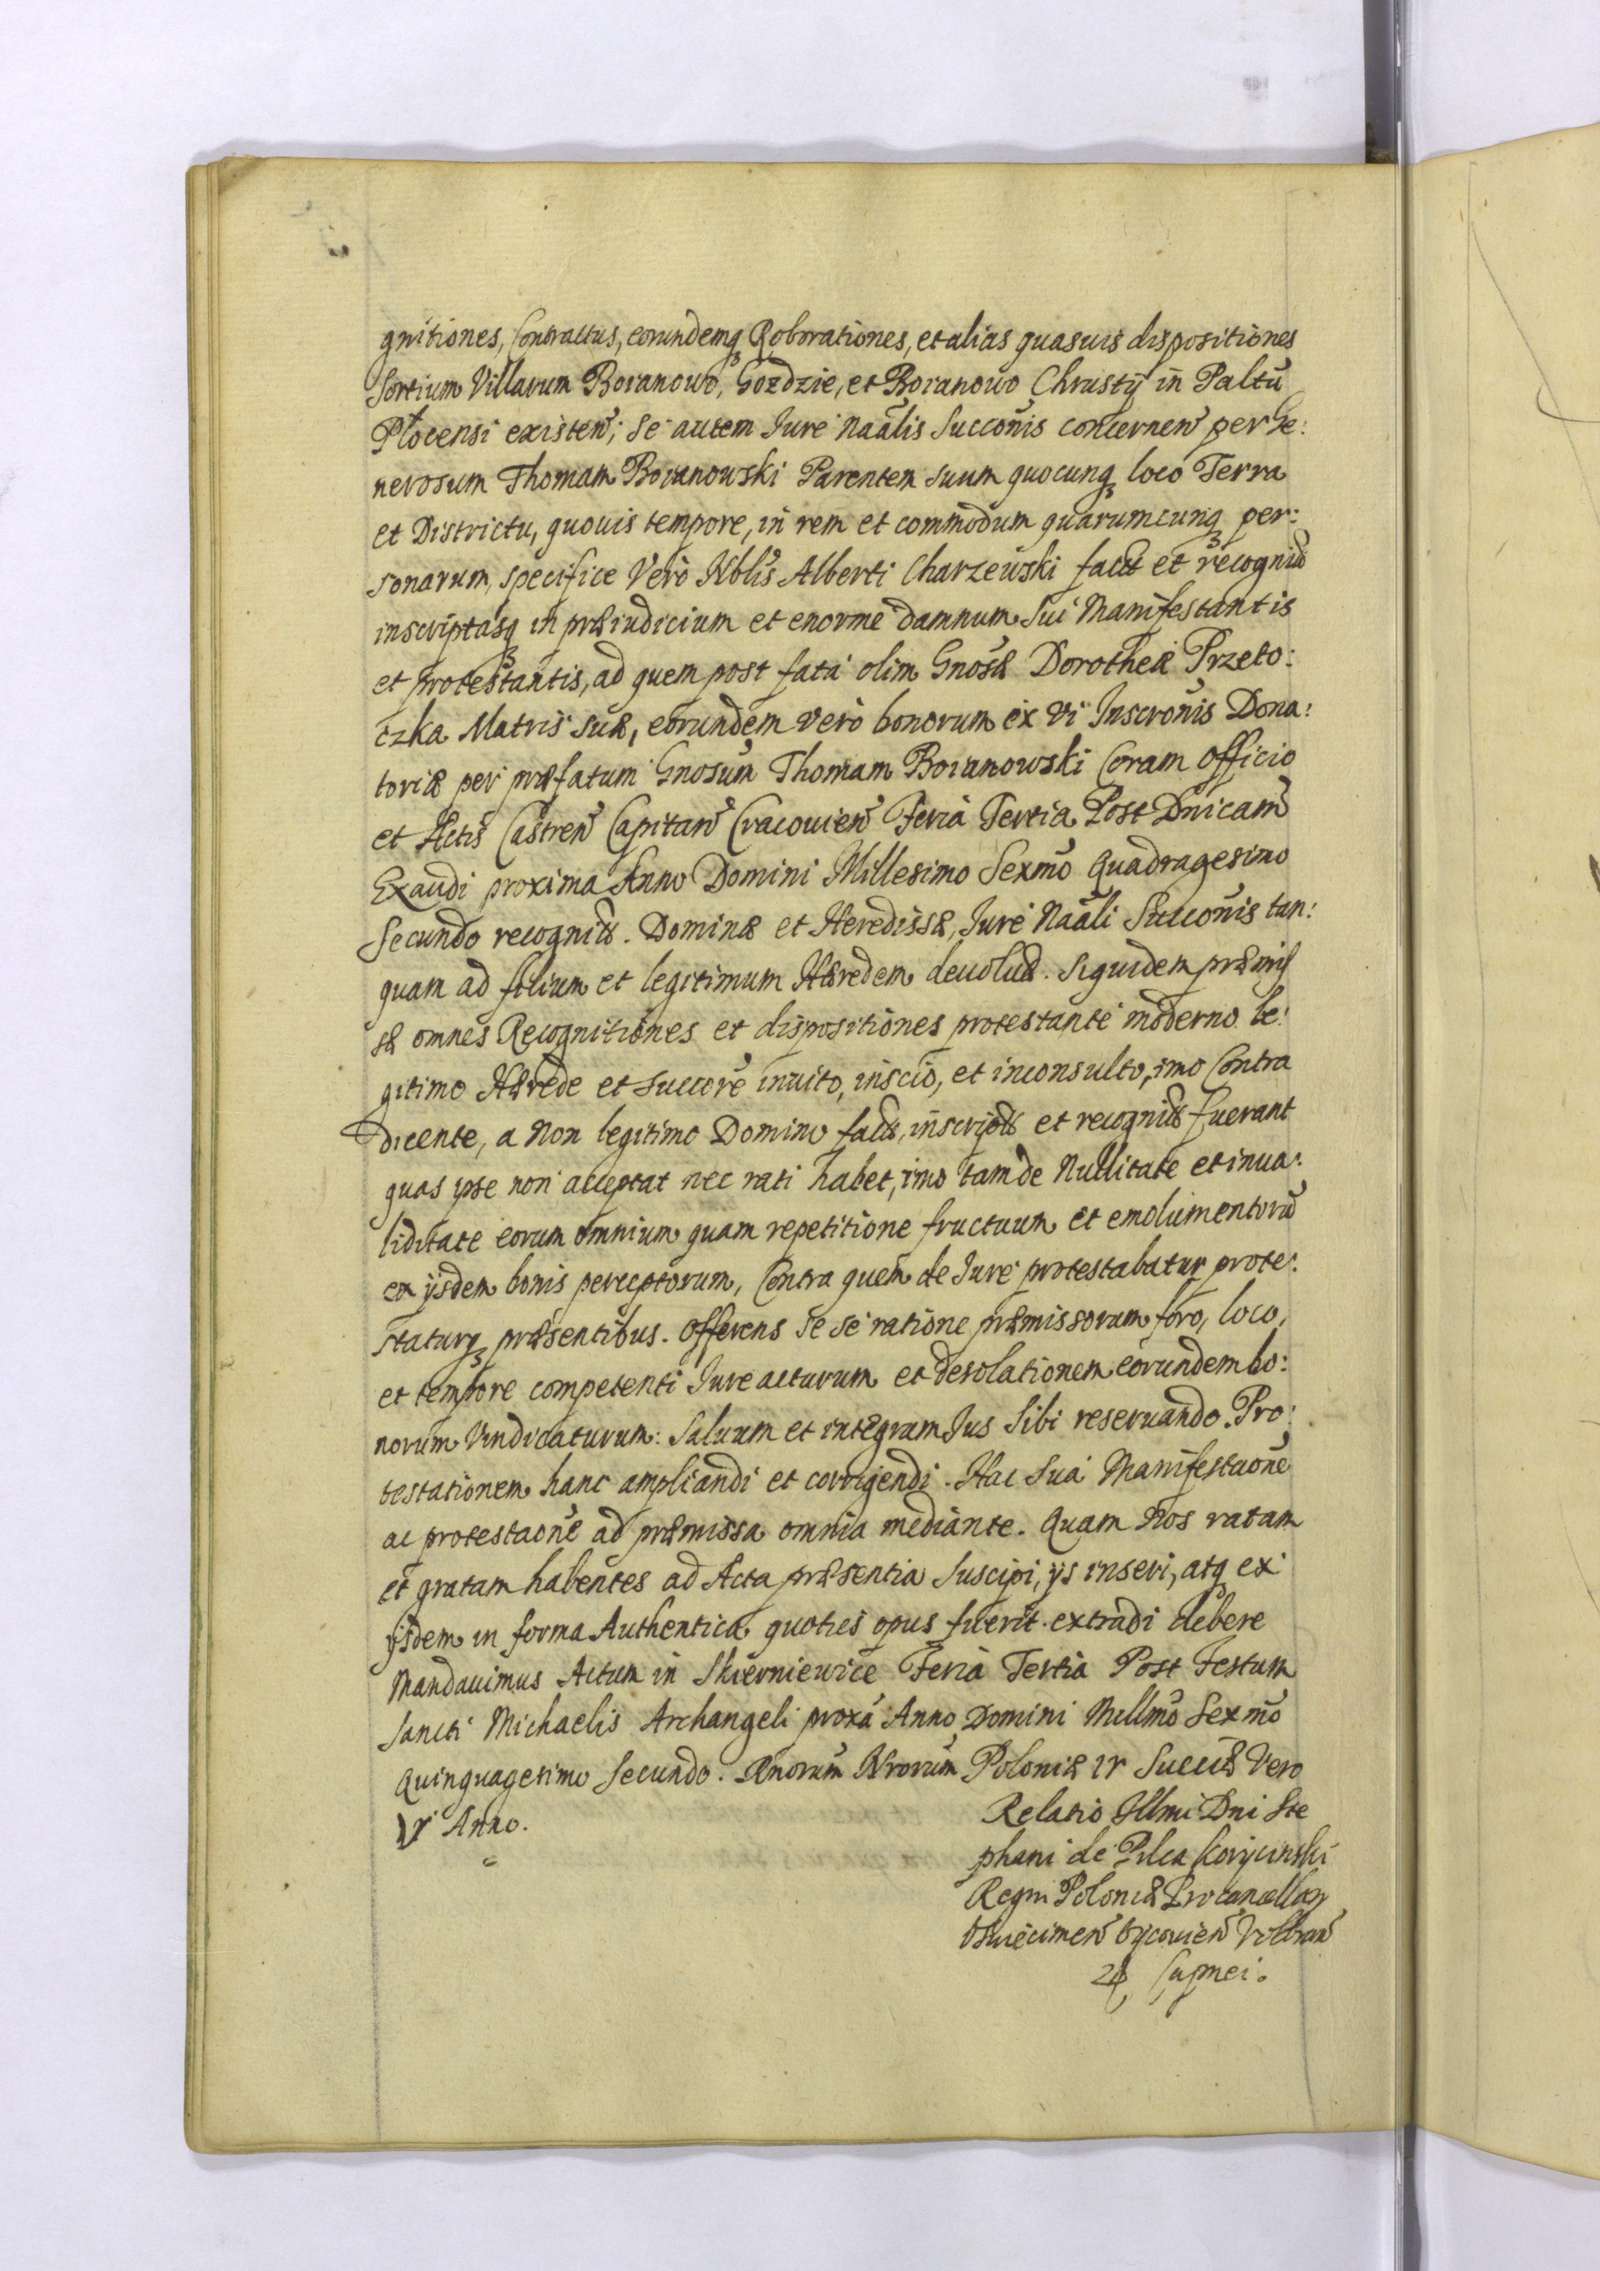 gnitiones, Contractus, eorundemq₃ Roborationes, et alias quasuis dispositiones
Sortium Villarum Boranowo, Gozdzie, et Boranowo Chrusty in Paltũ
Plocensi existeñ; Se autem Jure Naãlis Succoñis concerneñ per Ge:
nerosum Thomam Boranowski Parentem suum quocunq₃ loco Terra
et Districtu, quouis tempore, in rem et commodum quarumcunq₃ per:
sonarum, specifice Verò Nblis Alberti Charzewski fact et recognit
inscriptasq₃ in præiudicium et enorme damnum Sui Manifestantis
et protestantis, ad quem post fata olim Gnosæ Dorotheæ Przeto:
czka Matris suæ, eorundem verò bonorum ex vi Inscronis Dona:
toriæ per præfatum Gnosum Thomam Boranowski Coram Officio
et Actis Castreñ Capitañ Cracouieñ Feria Tertia Post Dnicam
Exaudi proxima Anno Domini Millesimo Sexmo Quadragesimo
Secundo recognit. Dominæ et Heredissæ, Jure Naãli Succoñis tan:
quam ad filium et legitimum Hæredem deuolut. Siquidem præmis
sæ omnes Recognitiones et dispositiones protestante moderno le:
gitimo Hærede et Succore inuito, inscio, et inconsulto, imo Contra
dicente, a Non legitimo Domino fact, inscript et recognit fuerant
quas ipse non acceptat nec rati habet, imo tam de Nullitate et inua:
liditate eorum omnium quam repetitione fructuum et emolumentorũ
ex ijsdem bonis perceptorum, Contra quem de Jure protestabatur prote:
staturq₃ præsentibus. Offerens se se ratione præmissorum foro, loco,
et tempore competenti Jure acturum et desolationem eorundem bo:
norum Vindicaturum: Saluum et integrum Jus Sibi reseruando. Pro:
testationem hanc ampliandi et corrigendi. Hac Sua Manifestaoñe
ac protestaoñe ad præmissa omnia mediante. Quam Nos ratam
et gratam habentes ad Acta præsentia Suscipi, ijs inseri, atq₃ ex
ijsdem in forma Authentica quoties opus fuerit extradi debere
Mandauimus Actum in Skierniewice Feria Tertia Post Festum
Sancti Michaelis Archangeli proxa Anno Domini Millmo Sexmo
Quinquagesimo Secundo. Rnorum Nrorum Poloniæ IV Sueciæ Vero
V Anno.
Relatio Illmi Dni Ste
phani de Pilca Korycinski
Regni Poloniæ Procancellarij
Osviecimeñ Oycouieñ Wolbram
Capnei.